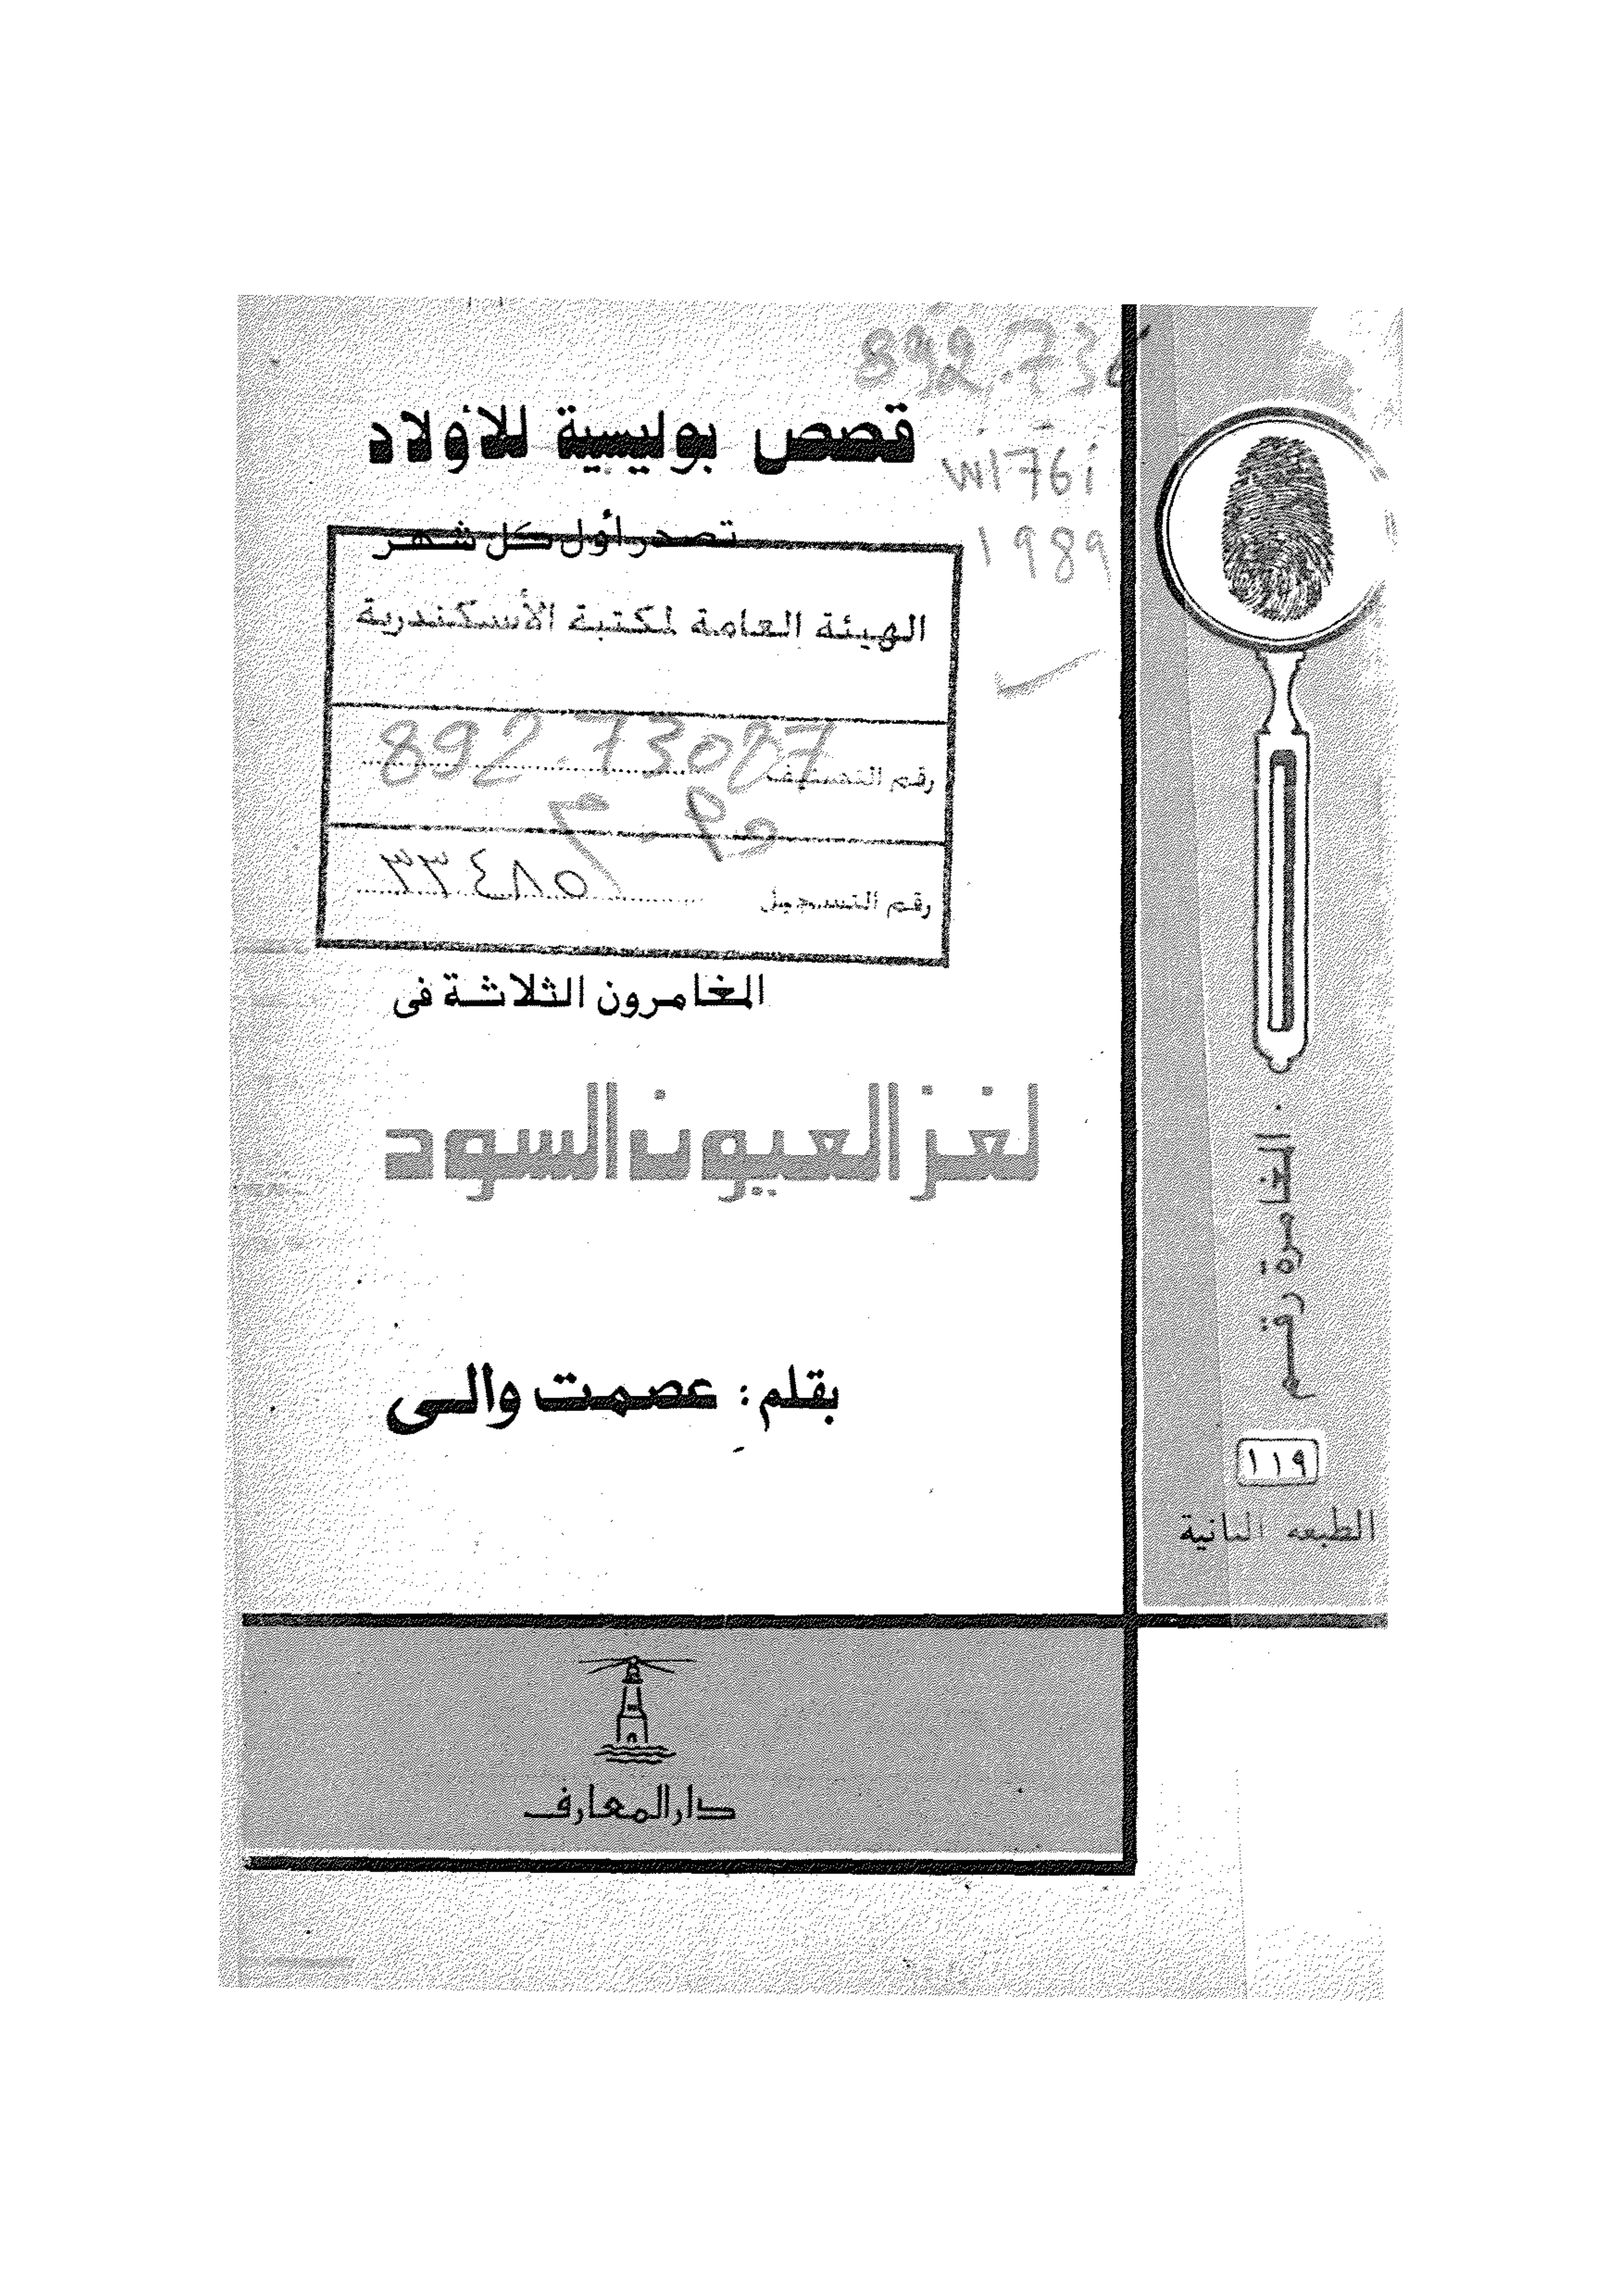 892.730
قصص بوليسية للأولاد
w176i
1989
تصدر أول كل شهر
الهيئة العامة لمكتبة الأسكندرية
رقم التصنيف 892.73087
رقم التسجيل ٣٣٤٨٥
المغامرون الثلاثة فى
لغز العيون السود
بقلم: عصمت والى
دار المعارف
المغامرة رقم
١١٩
الطبعة الثانية